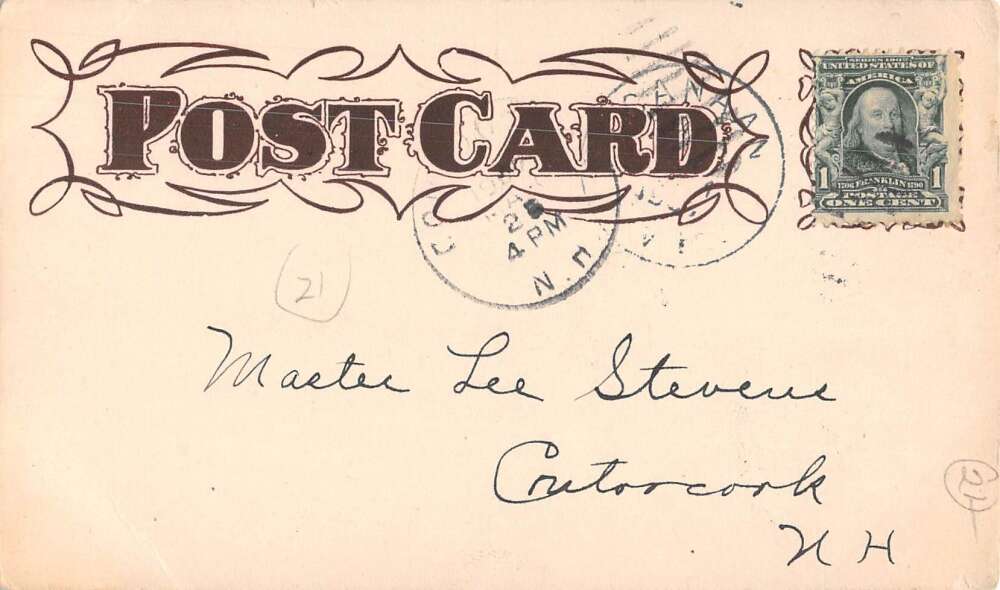 POST CARD
SERIES 1902
UNITED STATES OF
AMERICA
1706 FRANKLIN 1790
1 POSTAGE 1
ONE CENT
CANAAN
VT
CO
26
4 PM
N.H.
21
Master Lee Stevens
Contoocook
N H
21